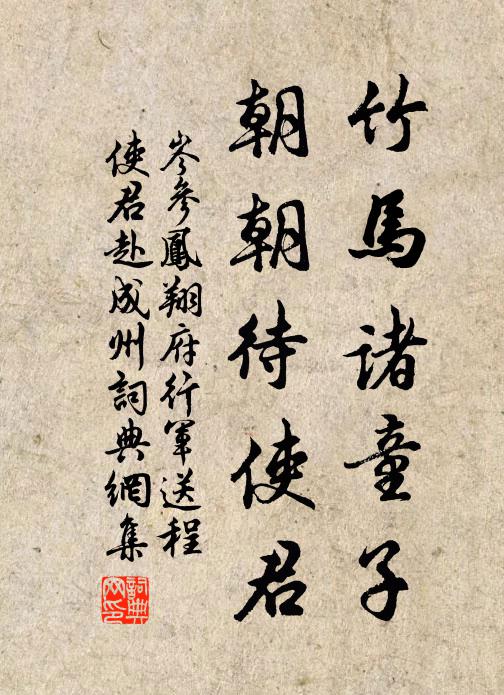 竹馬諸童子
朝朝待使君
岑參鳳翔府行軍送程
使君赴成州詞典網集
詞典
网印